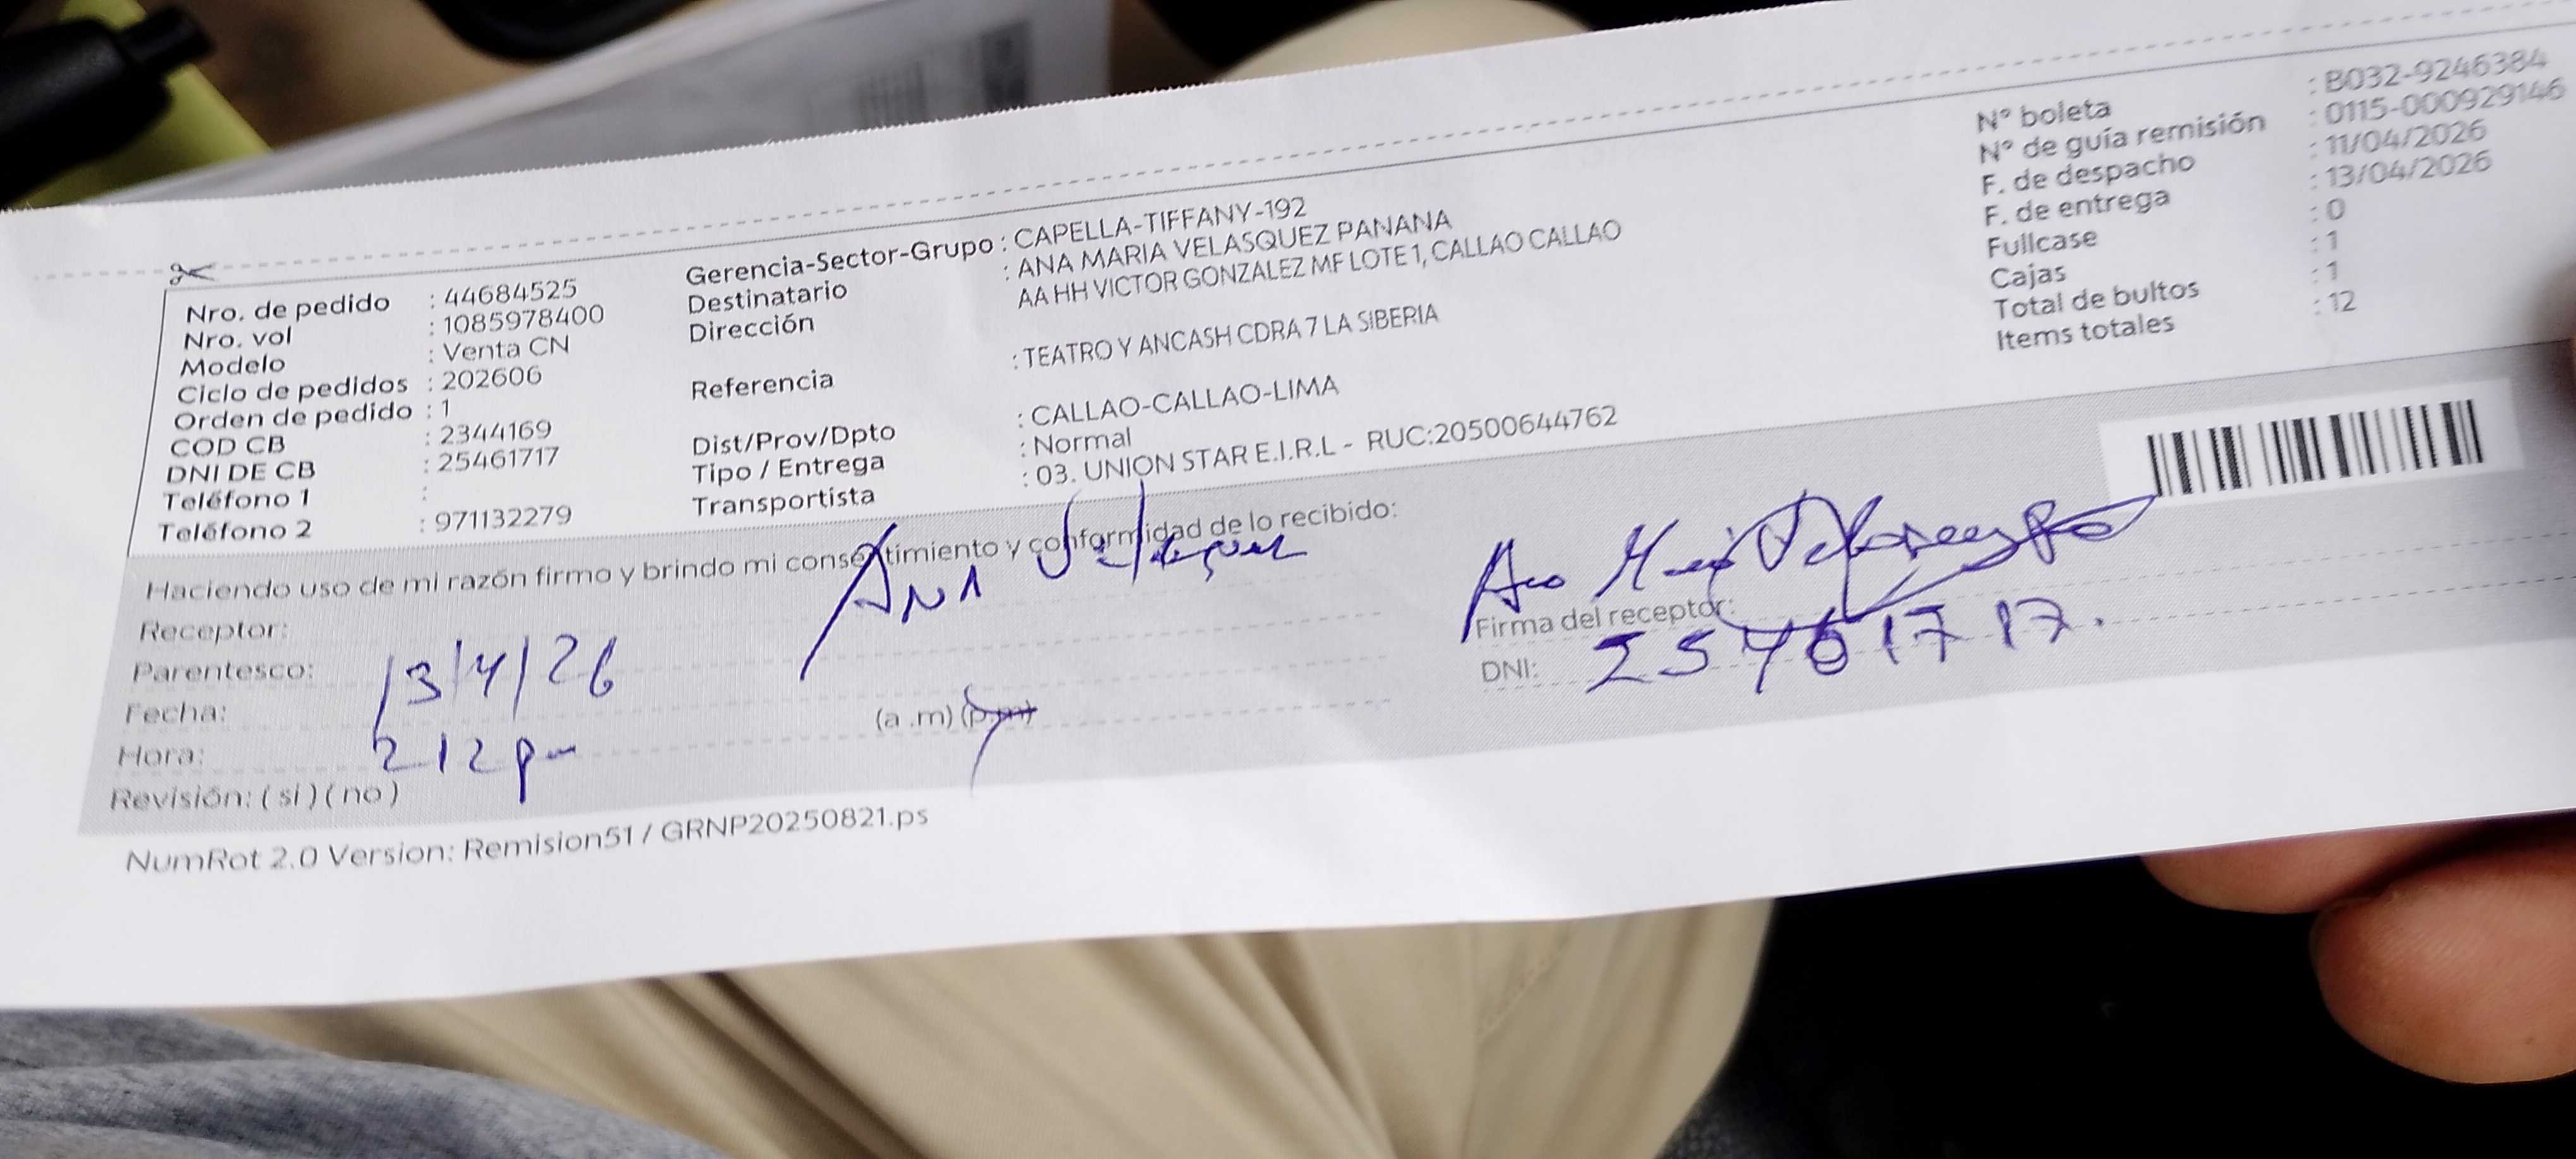 Nro. de pedido : 44684525
Nro. vol : 1085978400
Modelo : Venta CN
Ciclo de pedidos : 202606
Orden de pedido : 1
COD CB : 2344169
DNI DE CB : 25461717
Teléfono 1 :
Teléfono 2 : 971132279
Gerencia-Sector-Grupo : CAPELLA-TIFFANY-192
Destinatario : ANA MARIA VELASQUEZ PANANA
Dirección AA HH VICTOR GONZALEZ MF LOTE 1, CALLAO CALLAO
Referencia : TEATRO Y ANCASH CDRA 7 LA SIBERIA
Dist/Prov/Dpto : CALLAO-CALLAO-LIMA
Tipo / Entrega : Normal
Transportista : 03. UNION STAR E.I.R.L - RUC:20500644762
N° boleta : B032-9246384
N° de guía remisión : 0115-000929146
F. de despacho : 11/04/2026
F. de entrega : 13/04/2026
Fullcase : 0
Cajas : 1
Total de bultos : 1
Items totales : 12
Haciendo uso de mi razón firmo y brindo mi consentimiento y conformidad de lo recibido:
Receptor: ANA Velasquez
Parentesco:
Fecha: 13/4/26
Hora: 212 pm (a .m) (p.m)
Revisión: ( si ) ( no )
Firma del receptor:
DNI: 25461717.
NumRot 2.0 Version: Remision51 / GRNP20250821.ps